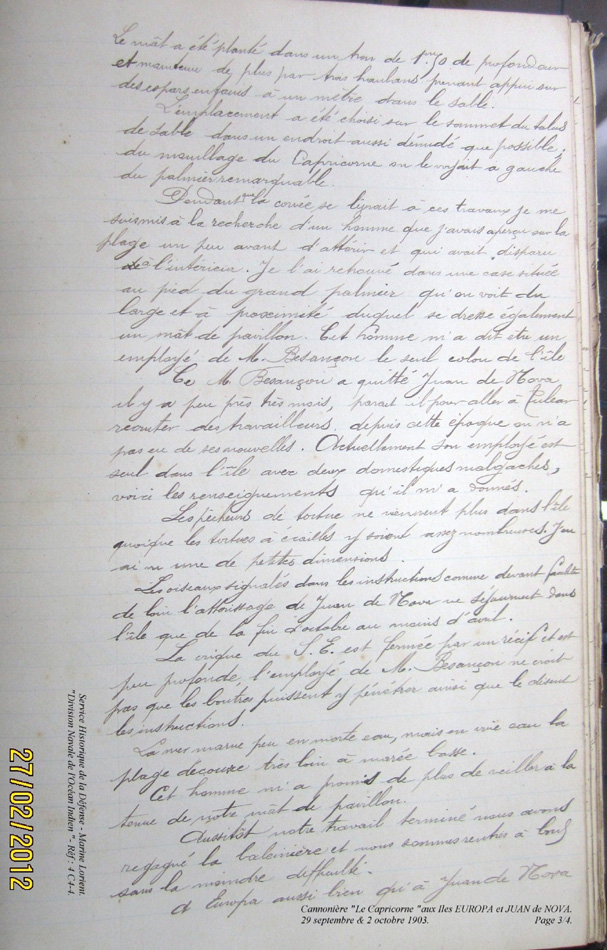 Le mât a été planté dans un trou de 1m50 de profondeur
et maintenu de plus par trois haubans prenant appui sur
des espars enfouis à un mètre dans le sable.
L'emplacement a été choisi sur le sommet du talus
de sable dans un endroit aussi dénudé que possible;
du mouillage du Capricorne on le voyait à gauche
du palmier remarquable.
Pendant que la corvée se livrait à ces travaux je me
suis mis à la recherche d'un homme que j'avais aperçu sur la
plage un peu avant d'attérir et qui avait disparu
à l'intérieur. Je l'ai retrouvé dans une case située
au pied du grand palmier qu'on voit du
large et à proximité duquel se dresse également
un mât de pavillon. Cet homme m'a dit être un
employé de M. Besançon le seul colon de l'île
Ce M Besançon a quitté Juan de Nova
il y a peu près trois mois, parait il pour aller à Tuléar
recruter des travailleurs. depuis cette époque on n'a
pas eu de ses nouvelles. Actuellement son employé est
seul dans l'île avec deux domestiques malgaches,
voici les renseignements qu'il m'a donnés.
Les pêcheurs de tortue ne viennent plus dans l'île
quoique les tortues à écailles y soient assez nombreuses. J'en
ai vu une de petites dimensions
Les oiseaux signalés dans les instructions comme devant faciliter
de loin l'attérissage de Juan de Nova ne séjournent dans
l'île que de la fin d'octobre au moins d'avril.
La crique du S.E. est fermée par un récif et est
peu profonde, l'employé de M. Besançon ne croit
pas que les boutres puissent y pénétrer ainsi que le disent
les instructions.
La mer marne peu en morte eau, mais en vive eau la
plage découvre très loin à marée basse.
Cet homme m'a promis de plus de veiller à la
tenue de notre mât de pavillon.
Aussitôt notre travail terminé nous avons
regagné la baleinière et nous sommes rentrés à bord
sans la moindre difficulté.
A Europa aussi bien qu'à Juan de Nova
Cannonière "Le Capricorne" aux Iles EUROPA et JUAN de NOVA.
29 septembre & 2 octobre 1903. Page 3/4.
Service Historique de la Défense - Marine Lorient.
"Division Navale de l'Océan Indien" - Réf : 4 C4-4.
27/02/2012